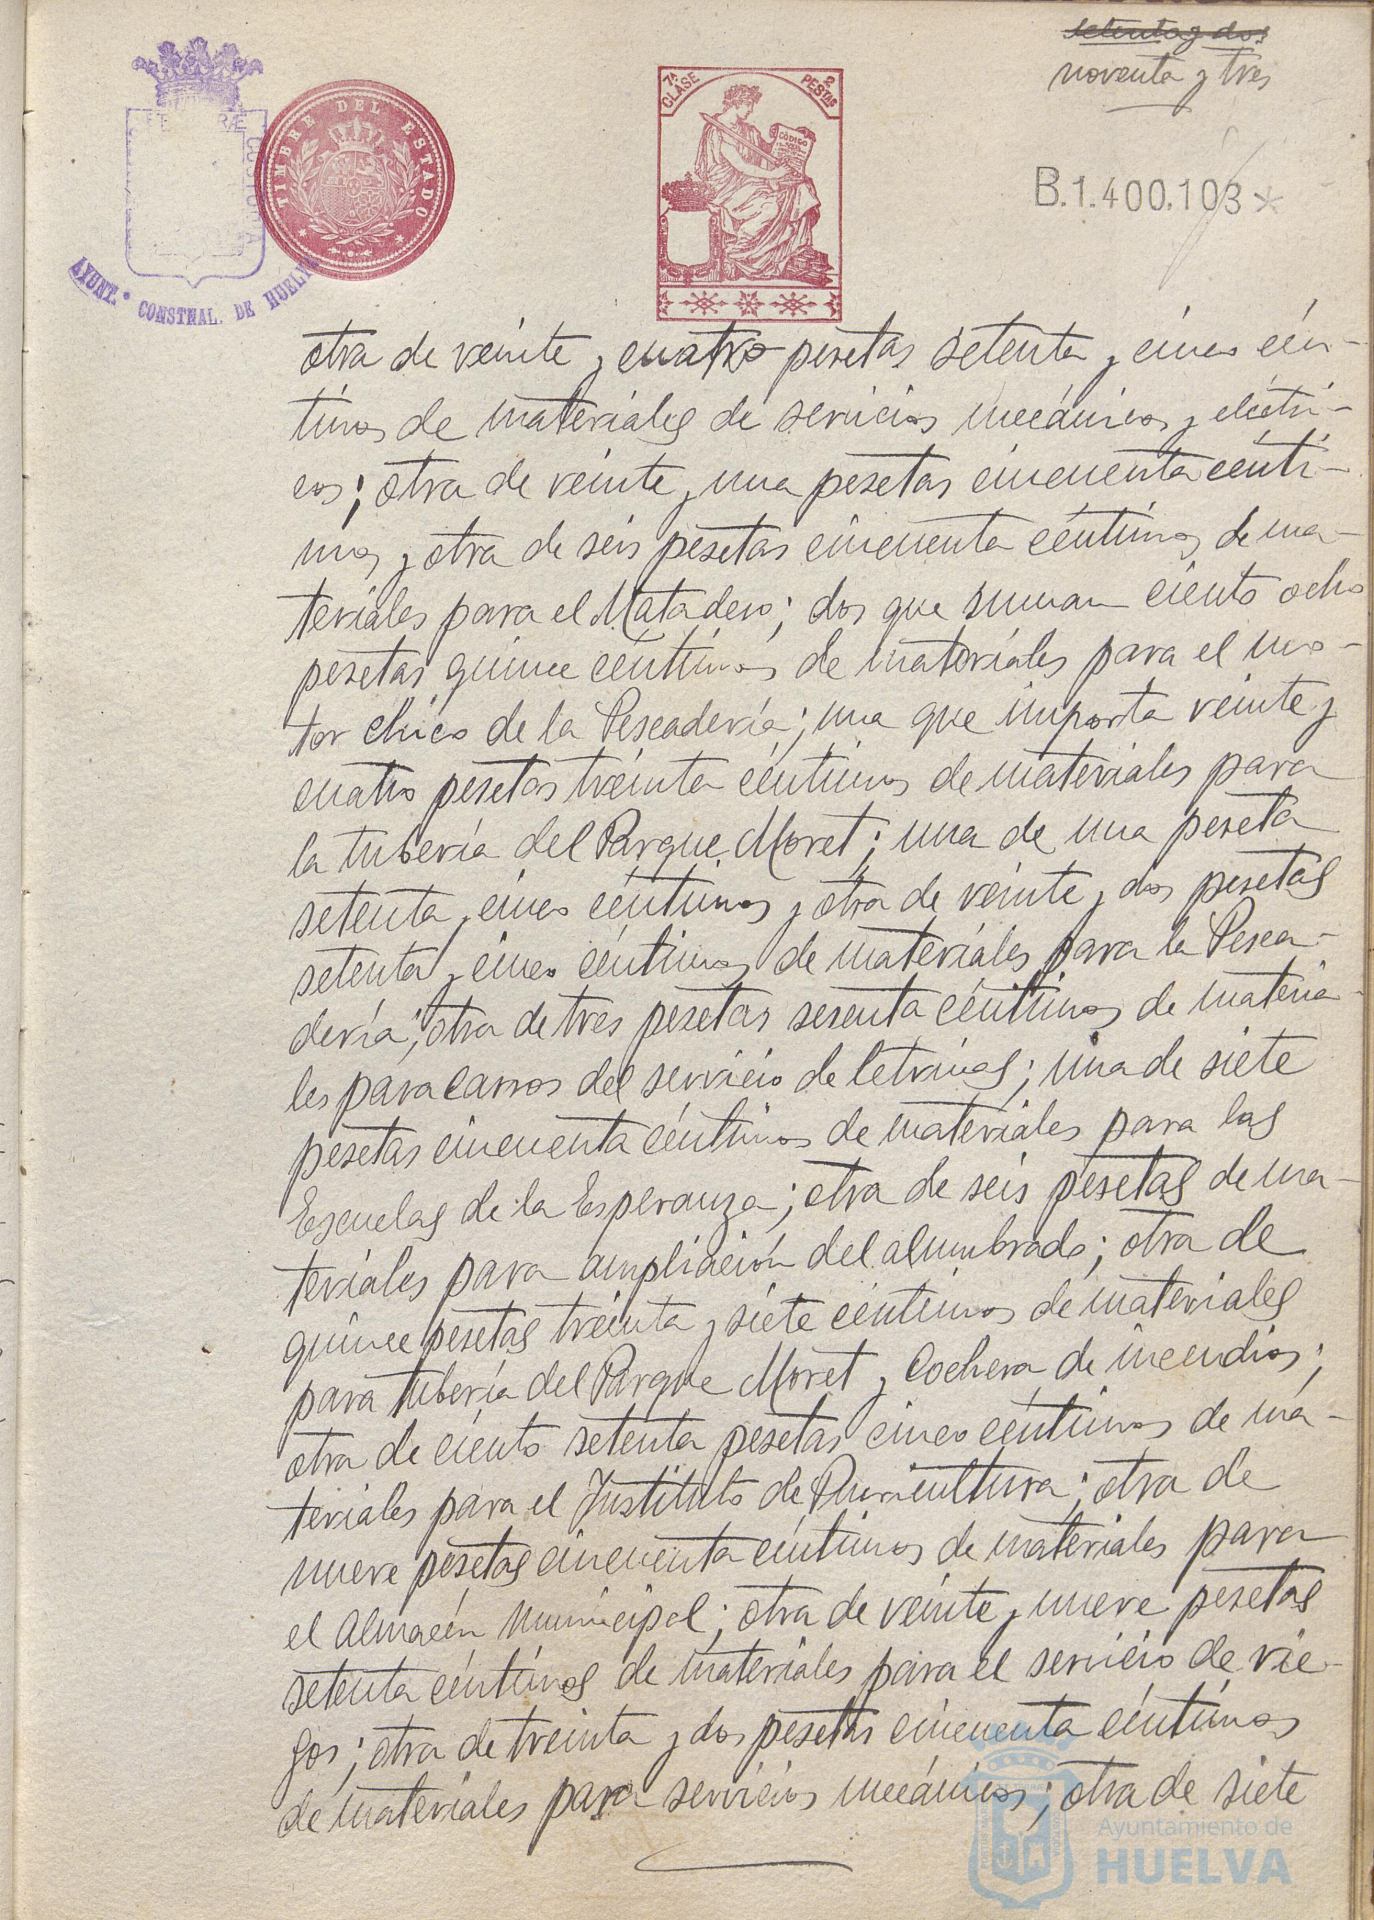 setenta y dos
noventa y tres
TIMBRE DEL ESTADO
7ª CLASE
2 PESTAS
CODIGO
B.1.400.103*
AYUNT. CONSTNAL. DE HUELVA
otra de veinte y cuatro pesetas setenta y cinco cén-
timos de materiales de servicios mecánicos y eléctri-
cos; otra de veinte y una pesetas cincuenta cénti-
mos y otra de seis pesetas cincuenta céntimos de ma-
teriales para el Matadero; dos que suman ciento ocho
pesetas quince céntimos de materiales para el mo-
tor chico de la Pescadería; una que importa veinte y
cuatro pesetas treinta céntimos de materiales para
la tubería del Parque Moret; una de una peseta
setenta y cinco céntimos y otra de veinte y dos pesetas
setenta y cinco céntimos de materiales para la Pesca-
dería; otra de tres pesetas sesenta céntimos de materia-
les para carros del servicio de letrinas; una de siete
pesetas cincuenta céntimos de materiales para las
Escuelas de la Esperanza; otra de seis pesetas de ma-
teriales para ampliación del alumbrado; otra de
quince pesetas treinta y siete céntimos de materiales
para tubería del Parque Moret y Cochera de incendios;
otra de ciento setenta pesetas cinco céntimos de ma-
teriales para el Instituto de Puericultura; otra de
nueve pesetas cincuenta céntimos de materiales para
el Almacén Municipal; otra de veinte y nueve pesetas
setenta céntimos de materiales para el servicio de rie-
gos; otra de treinta y dos pesetas cincuenta céntimos
de materiales para servicios mecánicos; otra de siete
Ayuntamiento de
HUELVA